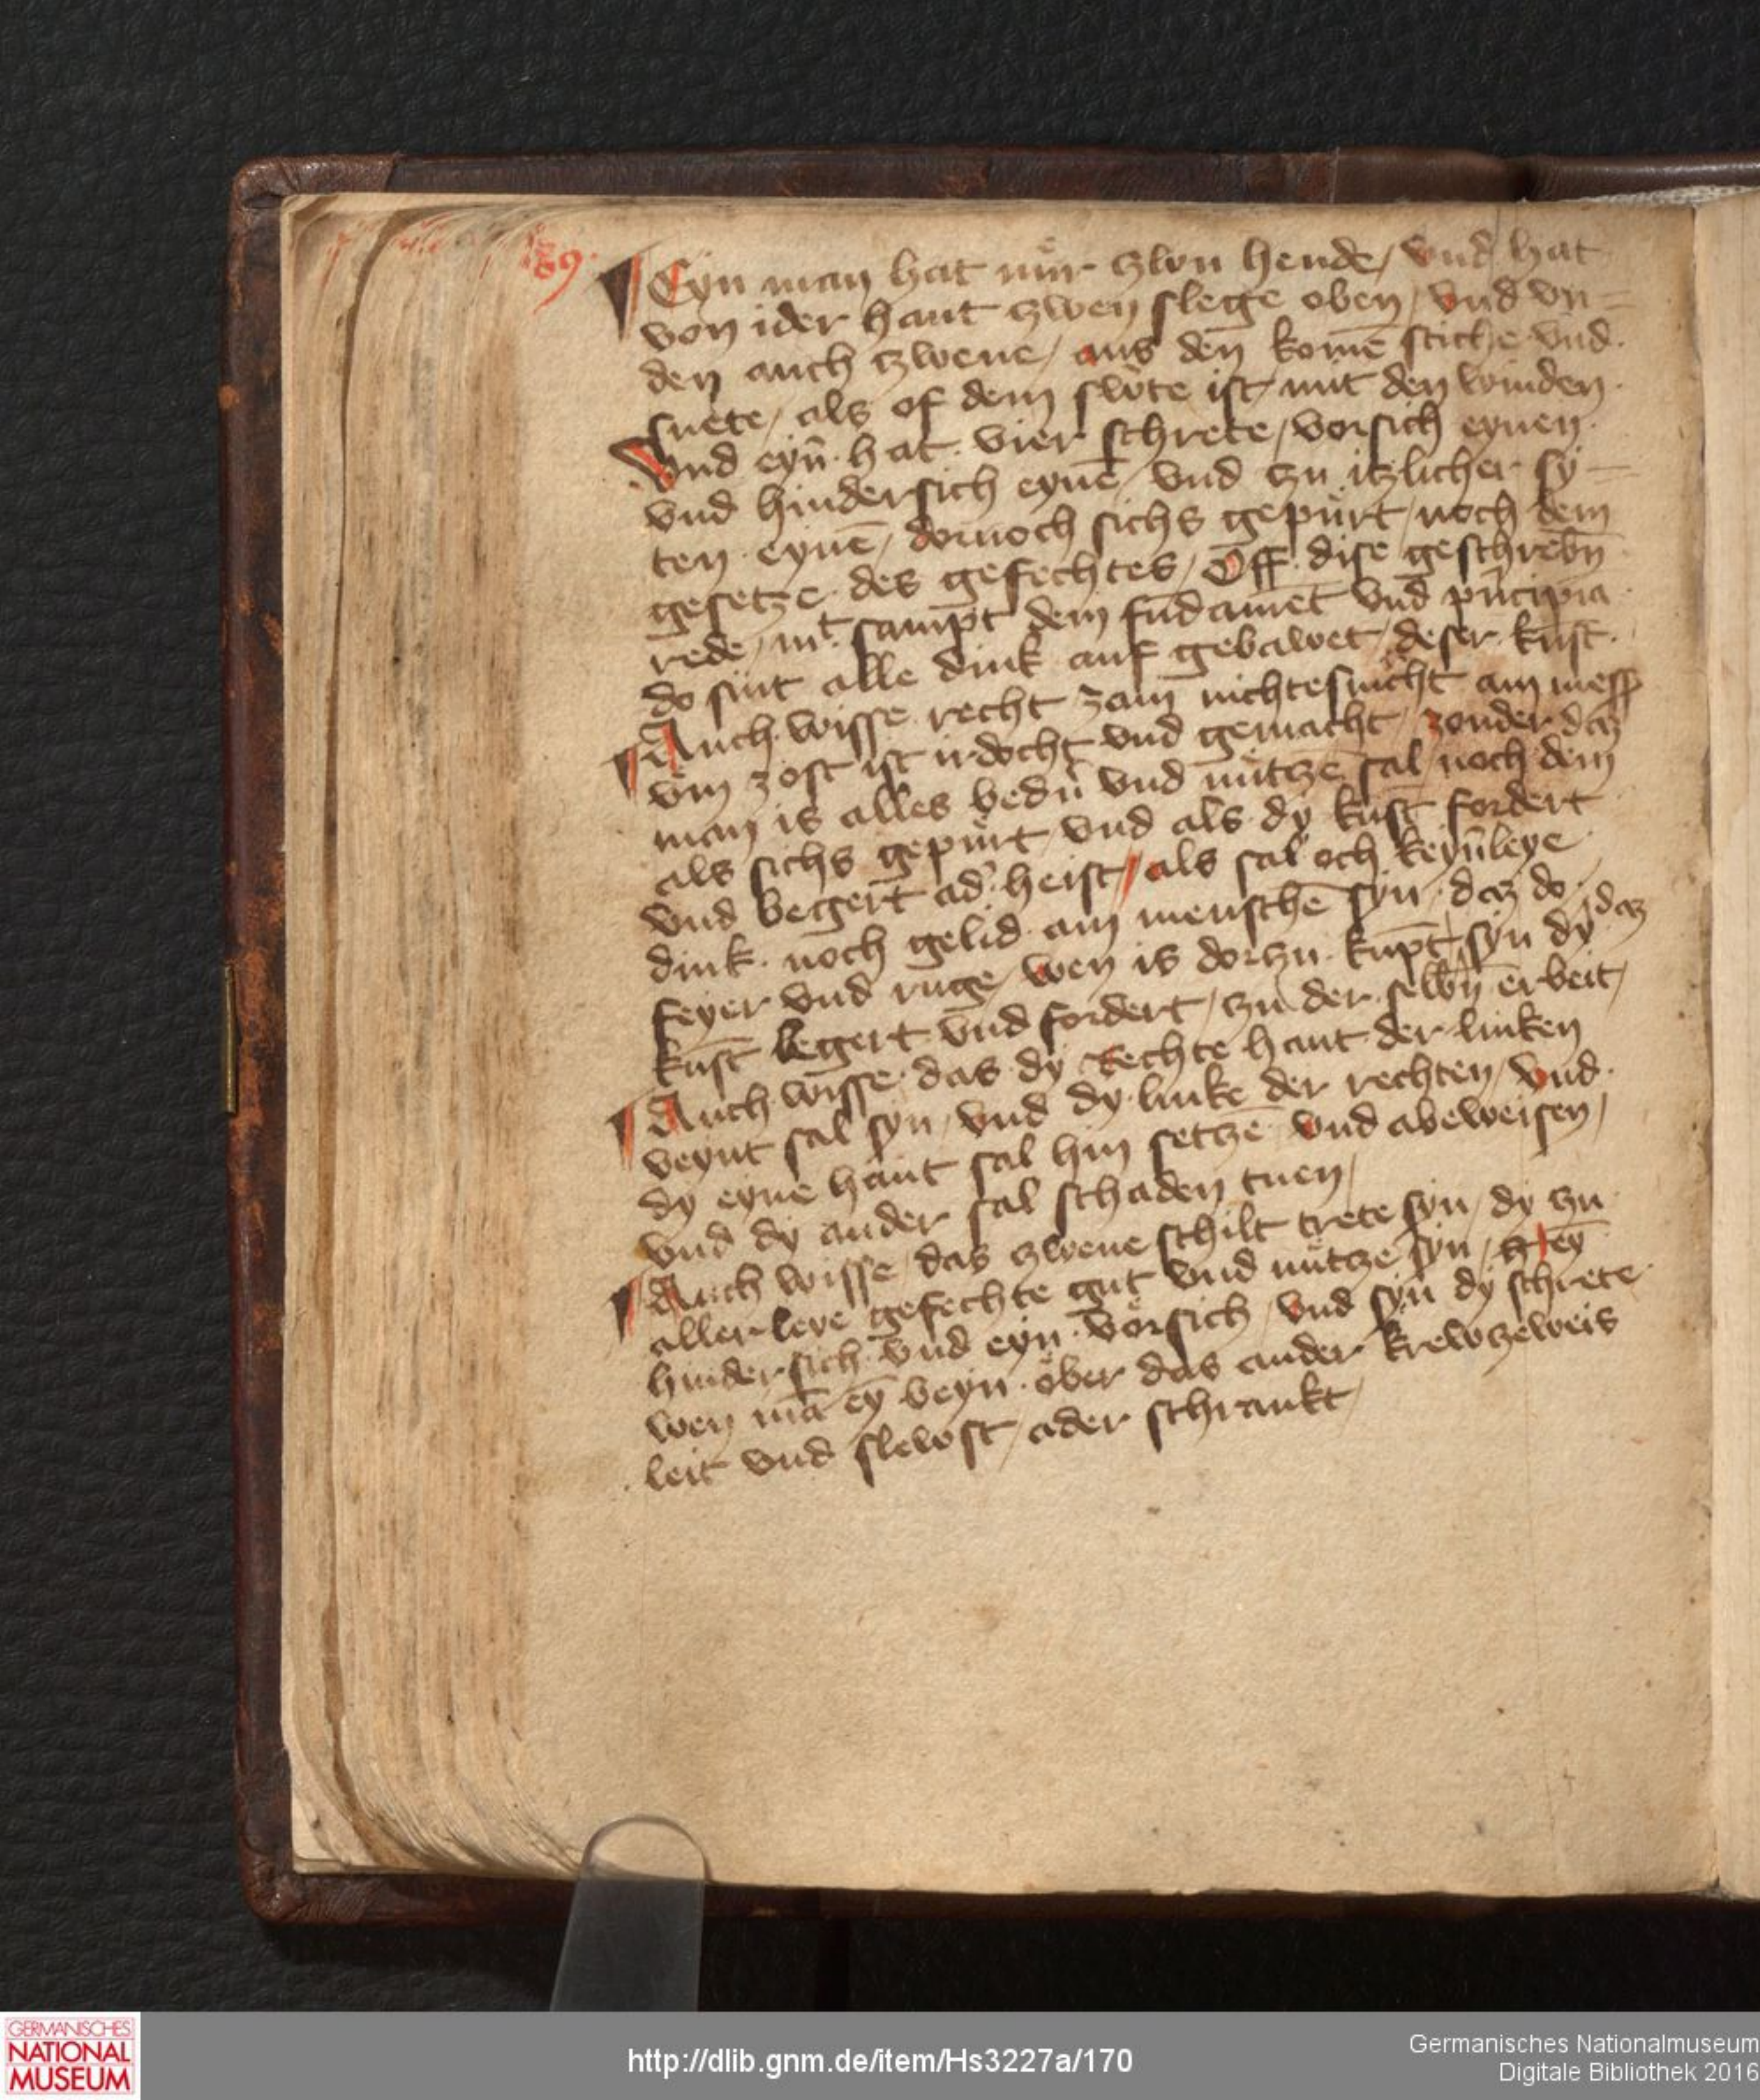 89.
Eyn man hat nür czwu hende / vnd hat
von ider hant czwen slege oben / vnd vn=
den auch czwene / aus den komē stiche vnd
snete / als of dem swöte ist mit den winden
Vnd eyn̄ hat vier schrete / vorsich eynen
vnd hindersich eynē / vnd czu itzlicher sy=
ten eynē / dornoch sichs gepürt / noch dem
gesetze des gefechtes / Off dise geschrebn̄
rede / mt sampt dem fūdamēt vnd pn̄cipia
do sint alle dink auf gebawet deser kūst
Auch wisse recht zam nichtesnicht am mess
vm̄ zost ist irdocht vnd gemacht / zonder daz
man is alles bedn̄ vnd nütczē sal noch dem
als sichs gepürt vnd als dy kūst fordert
vnd begert ad' heist / als sal och keyn̄leye
dink noch gelid am menschē syn daz do
feyer vnd ruge / wen is dorczu kūpt / syn daz dy
kūst begert vnd fordert / czu der selbn̄ erbeit /
Auch wisse das dy rechte hant der linken
veynt sal syn / vnd dy linke der rechten / vnd
dy eyne hant sal hin setczē vnd abeweisen /
vnd dy ander sal schaden tuen /
Auch wisse / das czwene schilt trete syn / dy czu
allerleye gefechte gut vnd nütze syn / eȳ
hindersich vnd eyn vörsich / vnd syn dy schrete
wen mā eȳ beyn öber das ander krewzeweis
leit vnd slewst / ader schrankt /
GERMANISCHES
NATIONAL
MUSEUM
http://dlib.gnm.de/item/Hs3227a/170
Germanisches Nationalmuseum
Digitale Bibliothek 2016